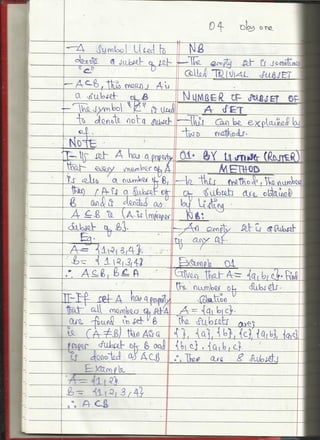 04 Obey one
- A Symbol Used to
denote a subset of set
"⊂"
- A⊂B, this means A is
a subset of B
- The symbol "⊄" is used
to denote not a subset
of.
NOTE
I - If set A has a property
that every member of A
is also a number of B,
then (A is a subset of
B and is denoted as
A ⊆ B (A is Improper
subset of B).
Eg.
A = {1,2,3,4}
B = {1,2,3,4}
∴ A⊆B, B⊆A
II - If set A has a property
that all members of set A
are found in set B
is (A ≠ B) then A is a
paper subset of B and
is denoted as A⊂B
Example
A = {1,2}
B = {1,2,3,4}
∴ A⊂B
NB
- The empty set is sometime
called TRIVIAL SUBSET
NUMBER OF SUBSET OF
A SET
- This can be explained by
two methods.
01. BY LISTING (ROSTER)
METHOD
- In this method, the number
of subsets are obtained
by listing
NB:
- An empty set is a subset
of any set
Example 01
Given that A = {a,b,c}. Find
the number of subsets.
Solution
A = {a,b,c}.
The subsets are:
{ }, {a}, {b}, {c}, {a,b}, {a,c}
{b,c}, {a,b,c}
∴ There are 8 subsets